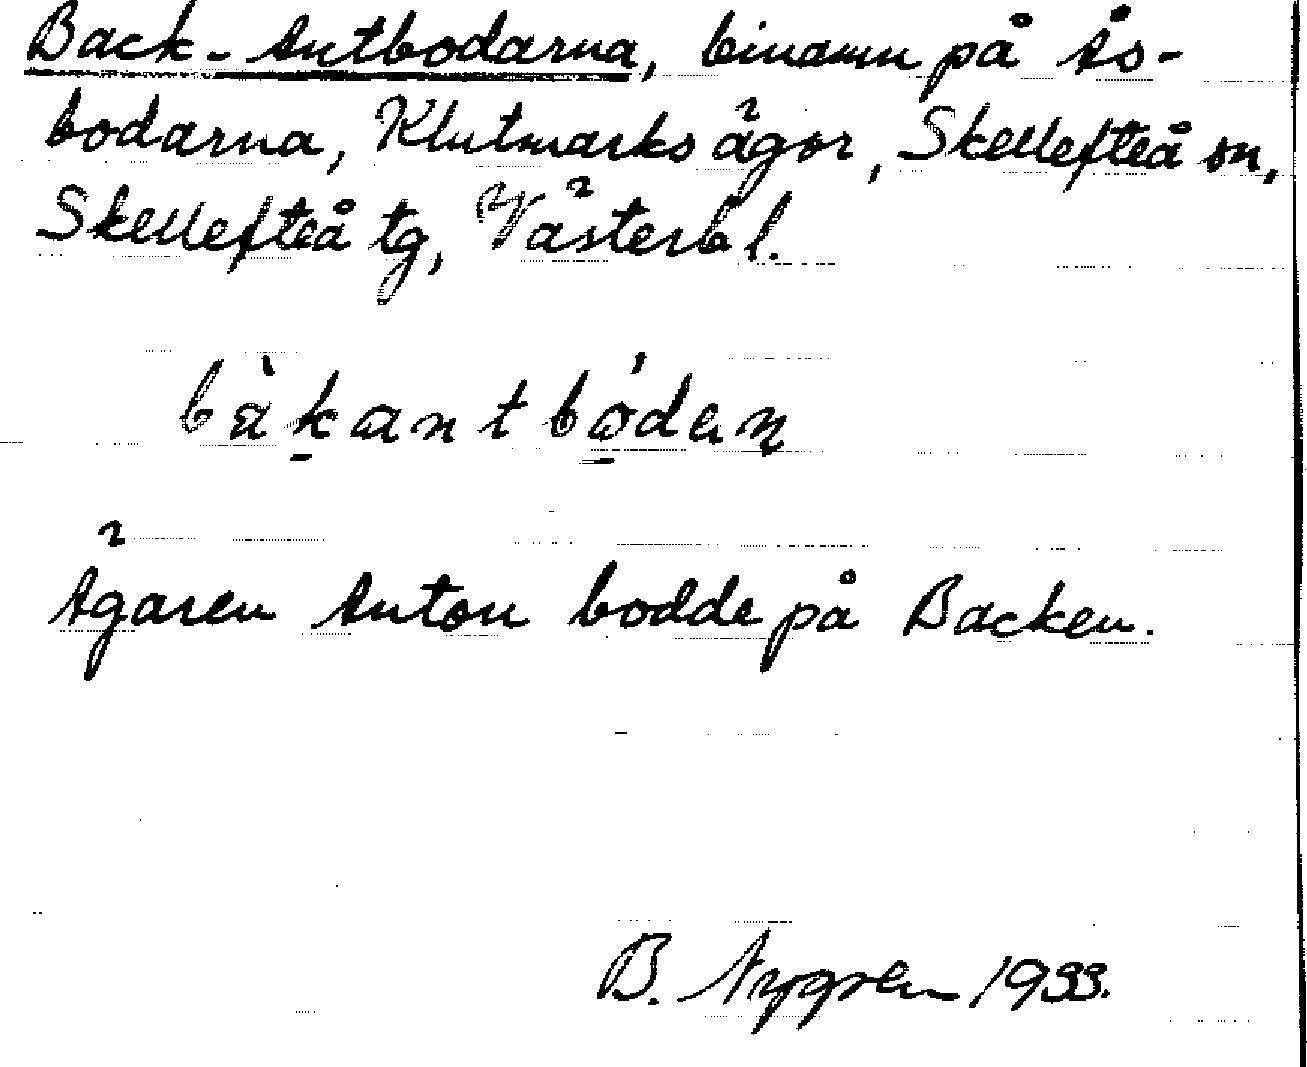 Back-Antbodarna, binamn på Ås-
bodarna, Klutmarks ägor, Skellefteå sn,
Skellefteå tg, Västerb l.
bàkantbódan
Ägaren Anton bodde på Backen.
B. Nygren 1933.